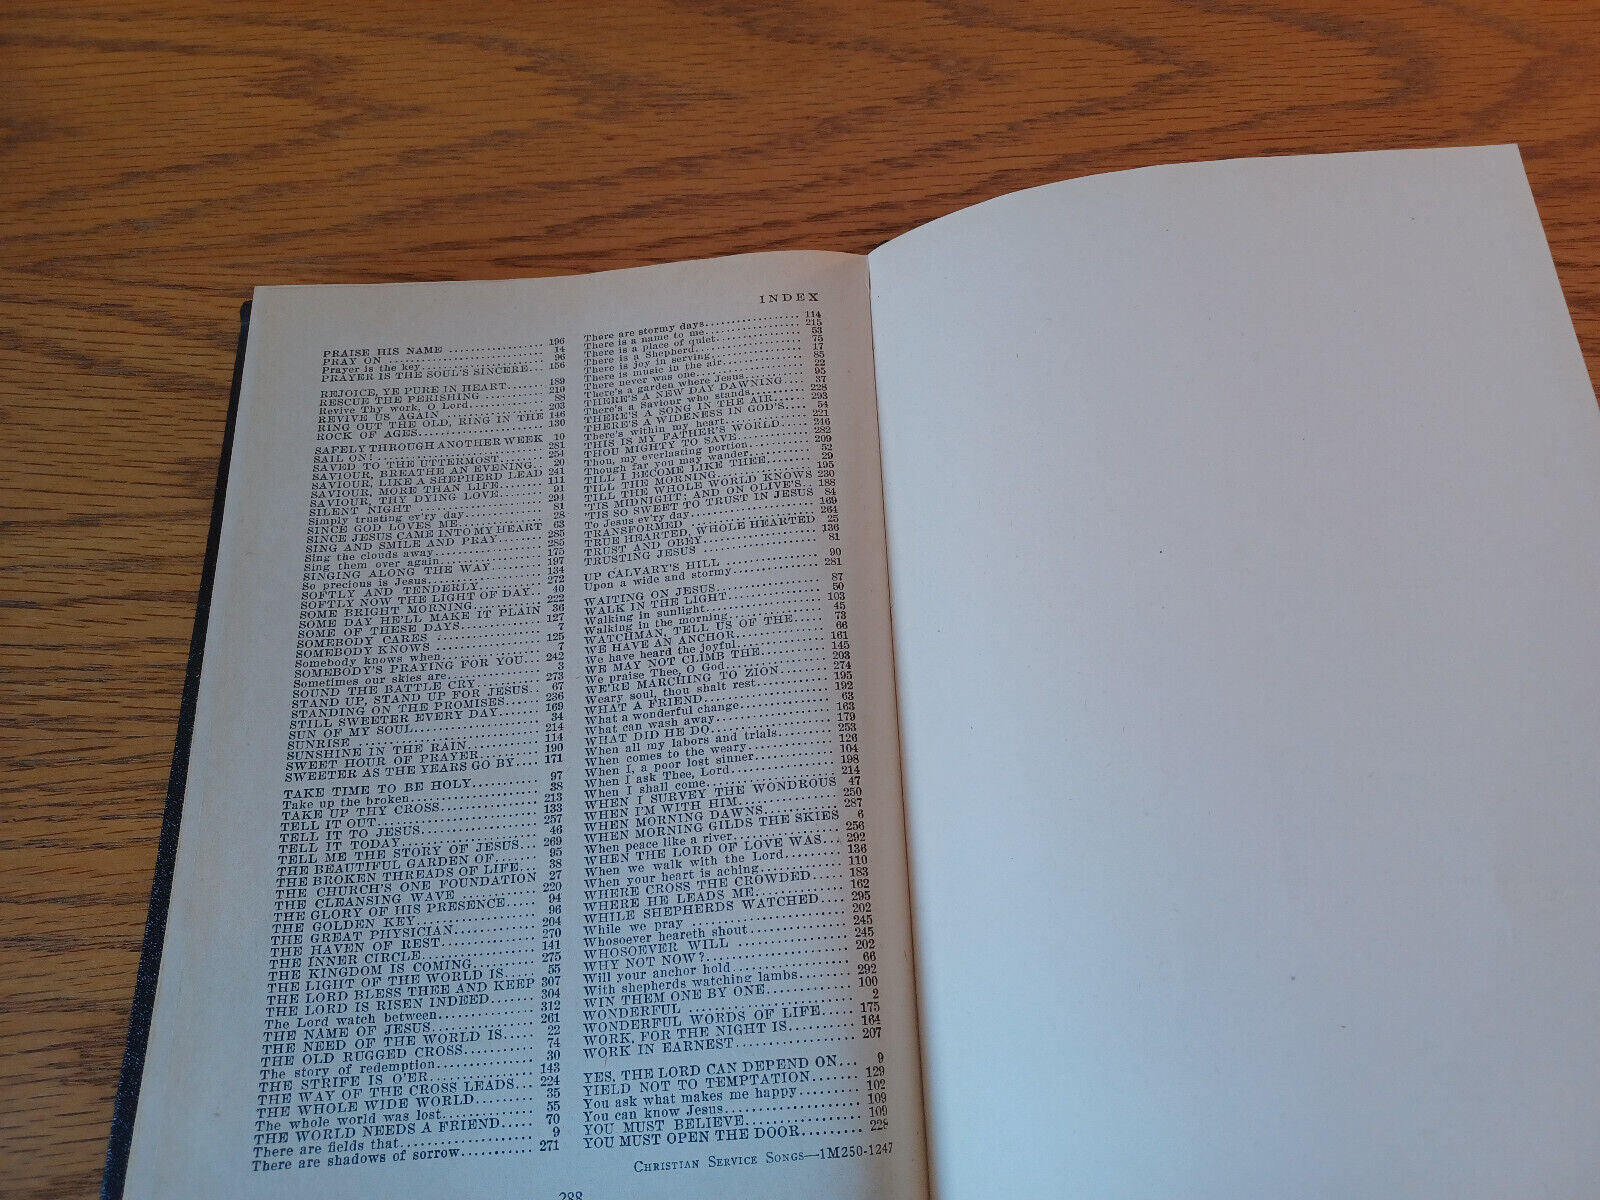 INDEX
PRAISE HIS NAME .............. 196
PRAY ON ........................ 14
Prayer is the key................. 96
PRAYER IS THE SOUL'S SINCERE... 156
REJOICE, YE PURE IN HEART...... 189
RESCUE THE PERISHING .......... 210
Revive Thy work, O Lord.......... 88
REVIVE US AGAIN ............... 203
RING OUT THE OLD, RING IN THE 146
ROCK OF AGES................... 130
SAFELY THROUGH ANOTHER WEEK 10
SAIL ON! ....................... 281
SAVED TO THE UTTERMOST........ 254
SAVIOUR, BREATHE AN EVENING.. 20
SAVIOUR, LIKE A SHEPHERD LEAD 241
SAVIOUR, MORE THAN LIFE....... 111
SAVIOUR, THY DYING LOVE....... 91
SILENT NIGHT .................. 294
Simply trusting ev'ry day......... 81
SINCE GOD LOVES ME............ 28
SINCE JESUS CAME INTO MY HEART 63
SING AND SMILE AND PRAY....... 285
Sing the clouds away............. 285
Sing them over again............. 175
SINGING ALONG THE WAY ........ 197
So precious is Jesus.............. 134
SOFTLY AND TENDERLY .......... 272
SOFTLY NOW THE LIGHT OF DAY.. 40
SOME BRIGHT MORNING.......... 222
SOME DAY HE'LL MAKE IT PLAIN 36
SOME OF THESE DAYS............ 127
SOMEBODY CARES ............... 7
SOMEBODY KNOWS ............... 125
Somebody knows when............. 7
SOMEBODY'S PRAYING FOR YOU... 242
Sometimes our skies are........... 3
SOUND THE BATTLE CRY.......... 273
STAND UP, STAND UP FOR JESUS.. 67
STANDING ON THE PROMISES..... 236
STILL SWEETER EVERY DAY...... 169
SUN OF MY SOUL................ 34
SUNRISE ....................... 214
SUNSHINE IN THE RAIN.......... 114
SWEET HOUR OF PRAYER......... 190
SWEETER AS THE YEARS GO BY.... 171
TAKE TIME TO BE HOLY.......... 97
Take up the broken................ 38
TAKE UP THY CROSS............. 213
TELL IT OUT.................... 133
TELL IT TO JESUS............... 257
TELL IT TODAY.................. 46
TELL ME THE STORY OF JESUS... 269
THE BEAUTIFUL GARDEN OF...... 95
THE BROKEN THREADS OF LIFE... 38
THE CHURCH'S ONE FOUNDATION 27
THE CLEANSING WAVE........... 220
THE GLORY OF HIS PRESENCE.... 94
THE GOLDEN KEY................ 96
THE GREAT PHYSICIAN........... 204
THE HAVEN OF REST............. 270
THE INNER CIRCLE............... 141
THE KINGDOM IS COMING........ 275
THE LIGHT OF THE WORLD IS.... 55
THE LORD BLESS THEE AND KEEP 307
THE LORD IS RISEN INDEED...... 304
The Lord watch between........... 312
THE NAME OF JESUS............. 261
THE NEED OF THE WORLD IS..... 22
THE OLD RUGGED CROSS......... 74
The story of redemption........... 30
THE STRIFE IS O'ER.............. 143
THE WAY OF THE CROSS LEADS... 224
THE WHOLE WIDE WORLD........ 35
The whole world was lost.......... 55
THE WORLD NEEDS A FRIEND..... 70
There are fields that............... 9
There are shadows of sorrow....... 271
There are stormy days............ 114
There is a name to me............ 215
There is a place of quiet.......... 53
There is a Shepherd.............. 75
There is joy in serving........... 17
There is music in the air......... 85
There never was one.............. 22
There's a garden where Jesus..... 95
THERE'S A NEW DAY DAWNING.... 37
There's a Saviour who stands..... 228
THERE'S A SONG IN THE AIR..... 293
THERE'S A WIDENESS IN GOD'S.... 54
There's within my heart.......... 221
THIS IS MY FATHER'S WORLD..... 246
THOU MIGHTY TO SAVE.......... 282
Thou, my everlasting portion...... 209
Though far you may wander....... 52
TILL I BECOME LIKE THEE....... 29
TILL THE MORNING.............. 195
TILL THE WHOLE WORLD KNOWS 230
'TIS MIDNIGHT; AND ON OLIVE'S.. 188
'TIS SO SWEET TO TRUST IN JESUS 84
To Jesus ev'ry day................ 169
TRANSFORMED .................. 264
TRUE HEARTED, WHOLE HEARTED 25
TRUST AND OBEY................ 136
TRUSTING JESUS ............... 81
UP CALVARY'S HILL ............. 90
Upon a wide and stormy........... 281
WAITING ON JESUS.............. 87
WALK IN THE LIGHT............. 50
Walking in sunlight............... 103
Walking in the morning........... 45
WATCHMAN, TELL US OF THE.... 73
WE HAVE AN ANCHOR............ 66
We have heard the joyful......... 161
WE MAY NOT CLIMB THE........ 145
We praise Thee, O God............ 203
WE'RE MARCHING TO ZION....... 274
Weary soul, thou shalt rest........ 195
WHAT A FRIEND................. 192
What a wonderful change......... 63
What can wash away............. 163
WHAT DID HE DO................ 179
When all my labors and trials..... 253
When comes to the weary......... 126
When I, a poor lost sinner........ 104
When I ask Thee, Lord........... 198
When I shall come............... 214
WHEN I SURVEY THE WONDROUS 47
WHEN I'M WITH HIM............. 250
WHEN MORNING DAWNS.......... 287
WHEN MORNING GILDS THE SKIES 6
When peace like a river........... 256
WHEN THE LORD OF LOVE WAS... 292
When we walk with the Lord...... 136
When your heart is aching........ 110
WHERE CROSS THE CROWDED.... 183
WHERE HE LEADS ME............ 162
WHILE SHEPHERDS WATCHED.... 295
While we pray .................. 202
Whosoever heareth shout.......... 245
WHOSOEVER WILL .............. 245
WHY NOT NOW?................. 202
Will your anchor hold............ 66
With shepherds watching lambs.... 292
WIN THEM ONE BY ONE.......... 100
WONDERFUL .................... 2
WONDERFUL WORDS OF LIFE..... 175
WORK, FOR THE NIGHT IS....... 164
WORK IN EARNEST.............. 207
YES, THE LORD CAN DEPEND ON... 9
YIELD NOT TO TEMPTATION...... 129
You ask what makes me happy..... 102
You can know Jesus.............. 109
YOU MUST BELIEVE............. 109
YOU MUST OPEN THE DOOR....... 228
CHRISTIAN SERVICE SONGS—1M250-1247
288